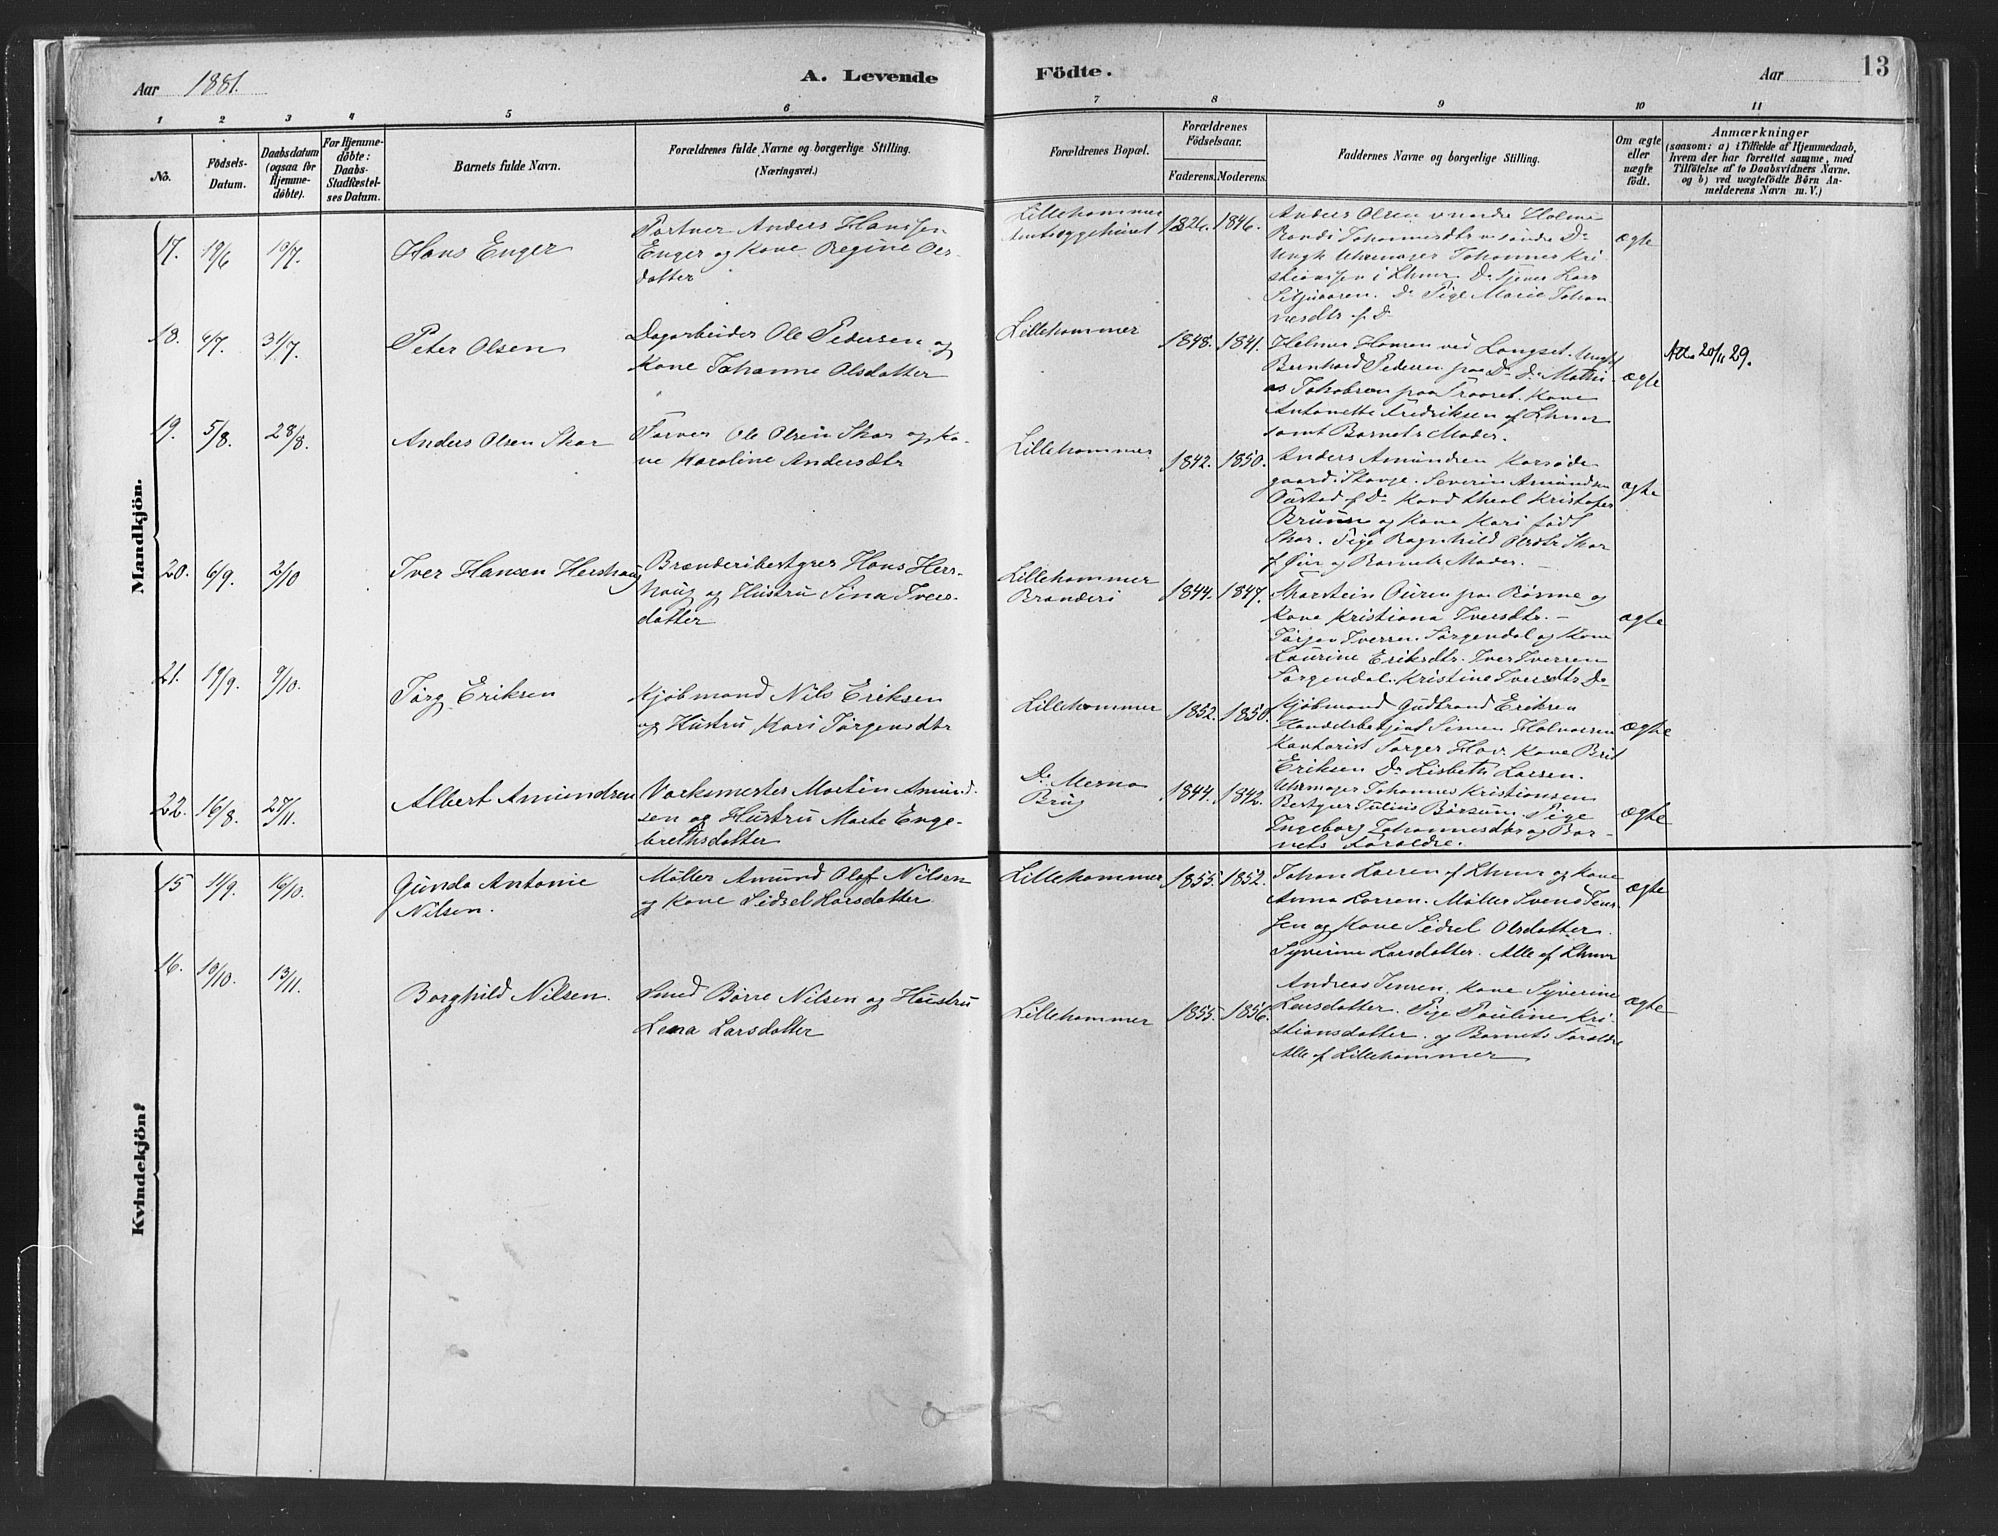 Aar 1881.
A. Levende
Födte.
Aar
13
1 2 3 4 5 6 7 8 9 10 11
No.
Födsels-
Datum.
Daabsdatum
(ogsaa for
Hjemme-
döbte).
For Hjemme-
döbte:
Daabs-
Stadfæstel-
ses Datum.
Barnets fulde Navn.
Forældrenes fulde Navne og borgerlige Stilling.
(Næringsvei.)
Forældrenes Bopæl.
Forældrenes
Födselsaar.
Faderens. Moderens.
Faddernes Navne og borgerlige Stilling.
Om ægte
eller
uægte
födt.
Anmærkninger
(saasom: a) i Tilfælde af Hjemmedaab,
hvem der har forrettet samme, med
Tilföielse af to Daabsvidners Navne.
og b) ved uægtefödte Börn An-
melderens Navn m. V.)
Mandkjön.
17. 19/6 19/7 Hans Enger
Portner Anders Hanssen
Enger og Kone Regine Ols-
datter
Lillehammer
Amtssygehuset
1826. 1846.
Anders Olsen nordre Holme
Randi Johannesdtr søndre Do
Ungk Uhrmager Johannes Kri-
stianssen i Lhmr. Do Tjener Lars
Do Pige Marie Johan-
nesdtr af Do
ægte
18. 4/7 31/7 Peter Olsen
Dagarbeider Ole Pedersen og
Kone Johanne Olsdatter
Lillehammer
1848. 1841.
Helmer Hansen ved Langset. Ungk
Bernhard Pedersen paa Do Do Mathi-
as Jakobsen paa Kone
Antonette Fredriksen af Lhmr
samt Barnets Moder.
ægte
20/11 29.
19. 5/8. 28/8. Anders Olsen Skar
Farver Ole Olsen Skar og Ko-
ne Karoline Andersdtr
Lillehammer
1842. 1850.
Anders Amundsen Korsøde-
gaard i Stange. Severin Amundsen
af Do Kand theol Kristofer
Bruun og Kone Kari født
Skar. Pige Ragnhild Olsdtr Skar
af Øier og Barnets Moder.
ægte
20. 6/9. 2/10 Iver Hansen Hershaug
Brænderibestyrer Hans Hers-
haug og Hustru Sina Ivers-
datter
Lillehammer
Brænderi
1844. 1847.
Thorstein paa og
Kone Kristiana Iversdtr. –
Iversen. Sørgendal og Kone
Laurine Eriksdtr. Iver Iversen
Sørgendal. Kristine Iversdtr Do
ægte
21. 19/9. 9/10. Jørg. Eriksen
Kjøbmand Nils Eriksen
og Hustru Kari Jørgensdtr
Lillehammer
1852. 1850.
Kjøbmand Gudbrand Eriksen
Handelsbetjent Simen Halvorsen
Kontorist Jørger Hov. Kone Brit
Eriksen Do Lisbeth Larsen.
ægte
22. 16/8. 27/11. Albert Amundsen
Værksmester Martin Amund-
sen og Hustru Marte Enge-
brethsdatter
Do Mesna
Brug
1844. 1842.
Uhrmager Johannes Kristiansen
Bestyrer Julius Børsum. Pige
Ingeborg Johannesdtr og Bar-
nets Foraldre.
ægte
Kvindekjön:
15 11/9. 16/10. Gunda Antonie
Nilsen.
Møller Amund Olaf Nilsen
og Kone Sidsel Larsdatter
Lillehammer
1855. 1852.
Johan Larsen af Lhmr og Kone
Anna Larsen. Møller Svend Jens-
sen og Kone Sidsel Olsdatter.
Syverine Larsdatter. Alle af Lhmr
ægte
16. 10/10. 13/11. Borghild Nilsen.
Smed Børre Nilsen og Hustru
Lena Larsdatter
Lillehammer
1855. 1856.
Andreas Jensen. Kone Syverine
Larsdatter. Pige Pauline Kri-
stiansdatter. og Barnets Foraldre
Alle af Lillehammer
ægte